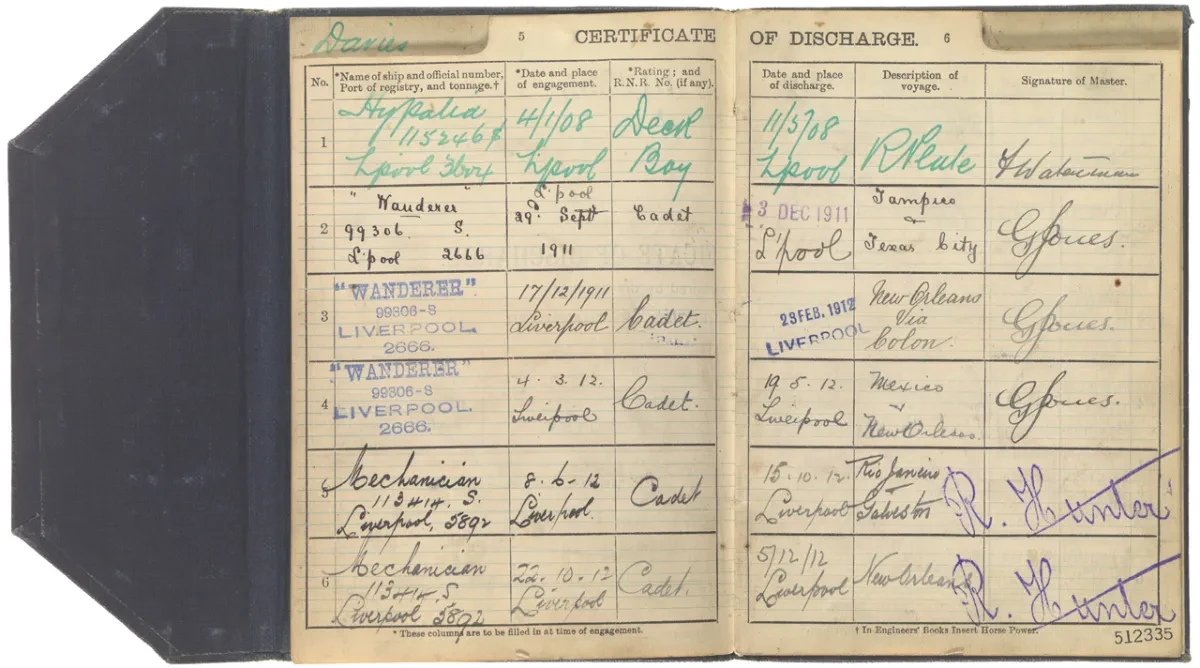 Davies
5 CERTIFICATE OF DISCHARGE. 6
No.
*Name of ship and official number, Port of registry, and tonnage.†
*Date and place of engagement.
*Rating; and R.N.R. No. (if any).
Date and place of discharge.
Description of voyage.
Signature of Master.
1
Hypatia
115246
L'pool
4/1/08
L'pool
Deck
Boy
11/3/08
L'pool
R Plate
Waterman
2
"Wanderer"
99306 S.
L'pool 2666
L'pool
29th Sept
1911
Cadet
3 DEC 1911
L'pool
Tampico
&
Texas City
G Jones.
3
"WANDERER"
99306-S
LIVERPOOL.
2666.
17/12/1911
Liverpool
Cadet.
23 FEB. 1912
LIVERPOOL
New Orleans
Via
Colon.
G Jones.
4
"WANDERER"
99306-S
LIVERPOOL.
2666.
4. 3. 12.
Liverpool
Cadet.
19 5. 12.
Liverpool
Mexico
&
New Orleans.
G Jones.
5
Mechanician
113414. S.
Liverpool, 5892
8-6-12
Liverpool.
Cadet
15.10.12.
Liverpool
Rio Janeiro
Galveston
R. Hunter
6
Mechanician
113414. S
Liverpool 5892
22-10-12
Liverpool
Cadet.
5/12/12
Liverpool
New Orleans
R. Hunter
* These columns are to be filled in at time of engagement.
† In Engineers' Books Insert Horse Power.
512335